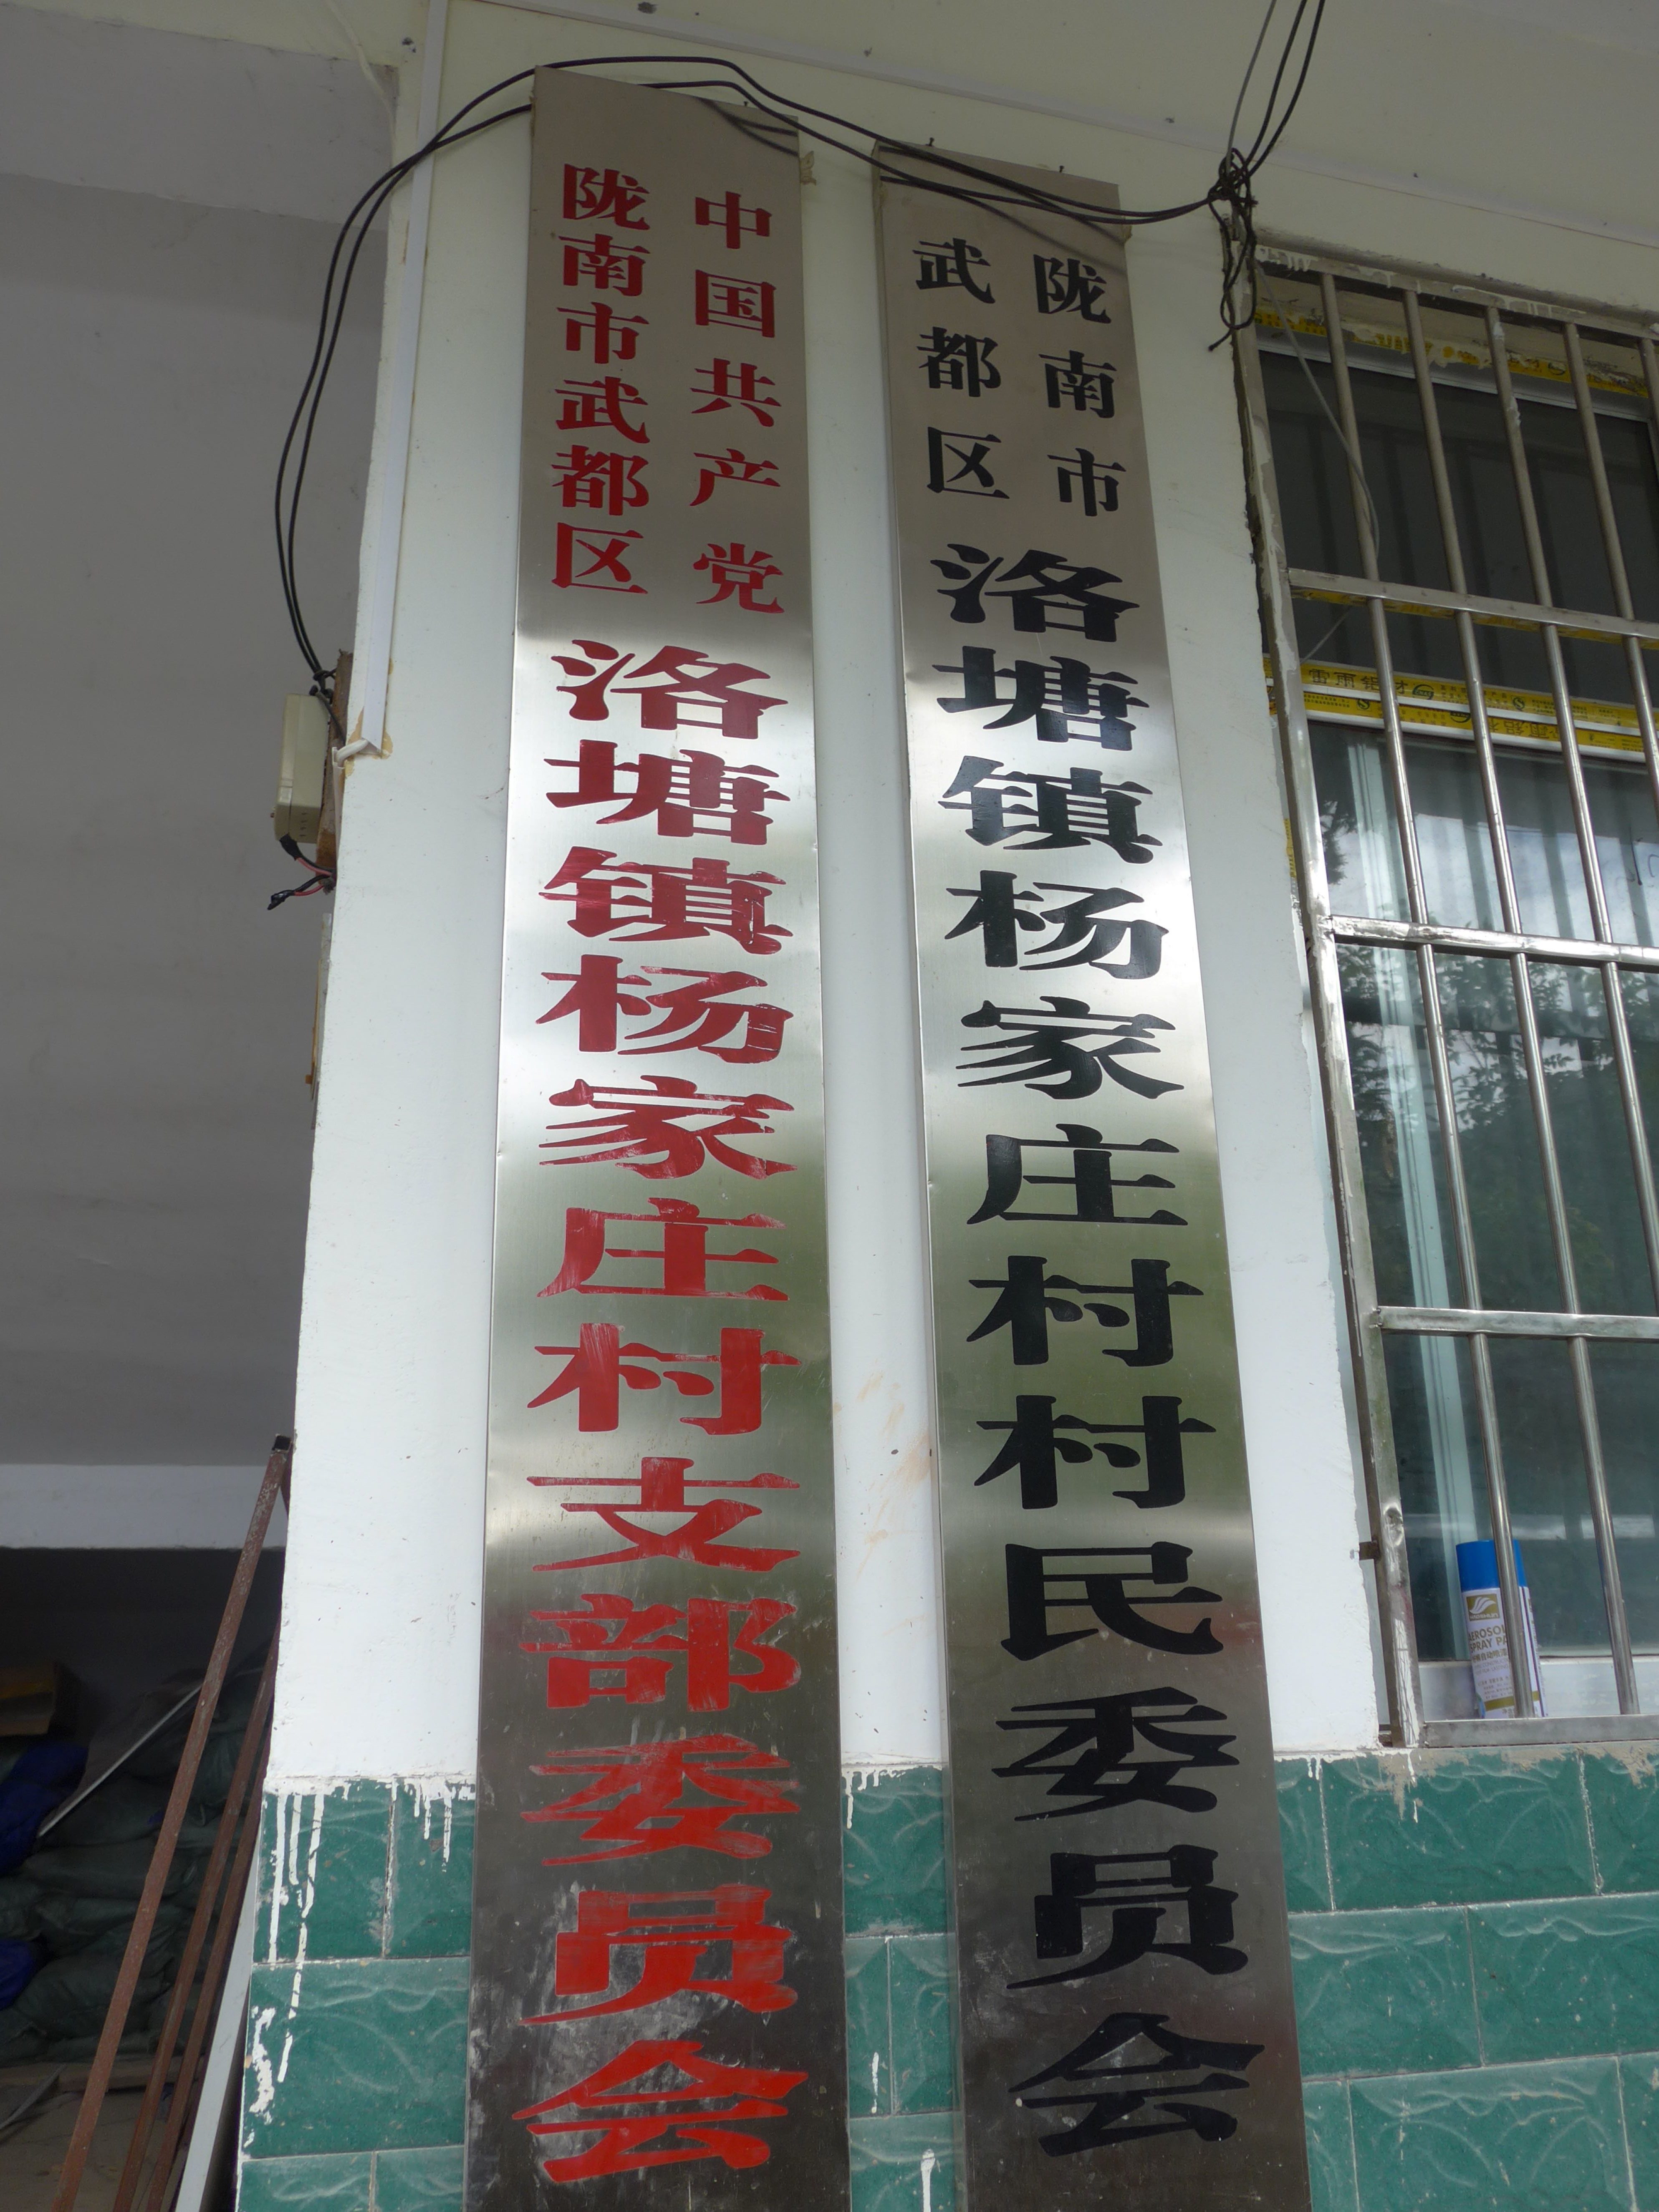 中国共产党
陇南市武都区
洛塘镇杨家庄村支部委员会
陇南市
武都区
洛塘镇杨家庄村村民委员会
雷雨铝材
AEROSOL
SPRAY PA